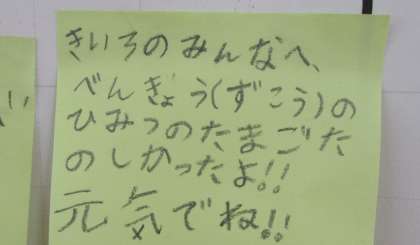 きいろのみんなへ、
べんぎょう(ずこう)の
ひみつのたまごた
のしかったよ!!
元気でね!!
い